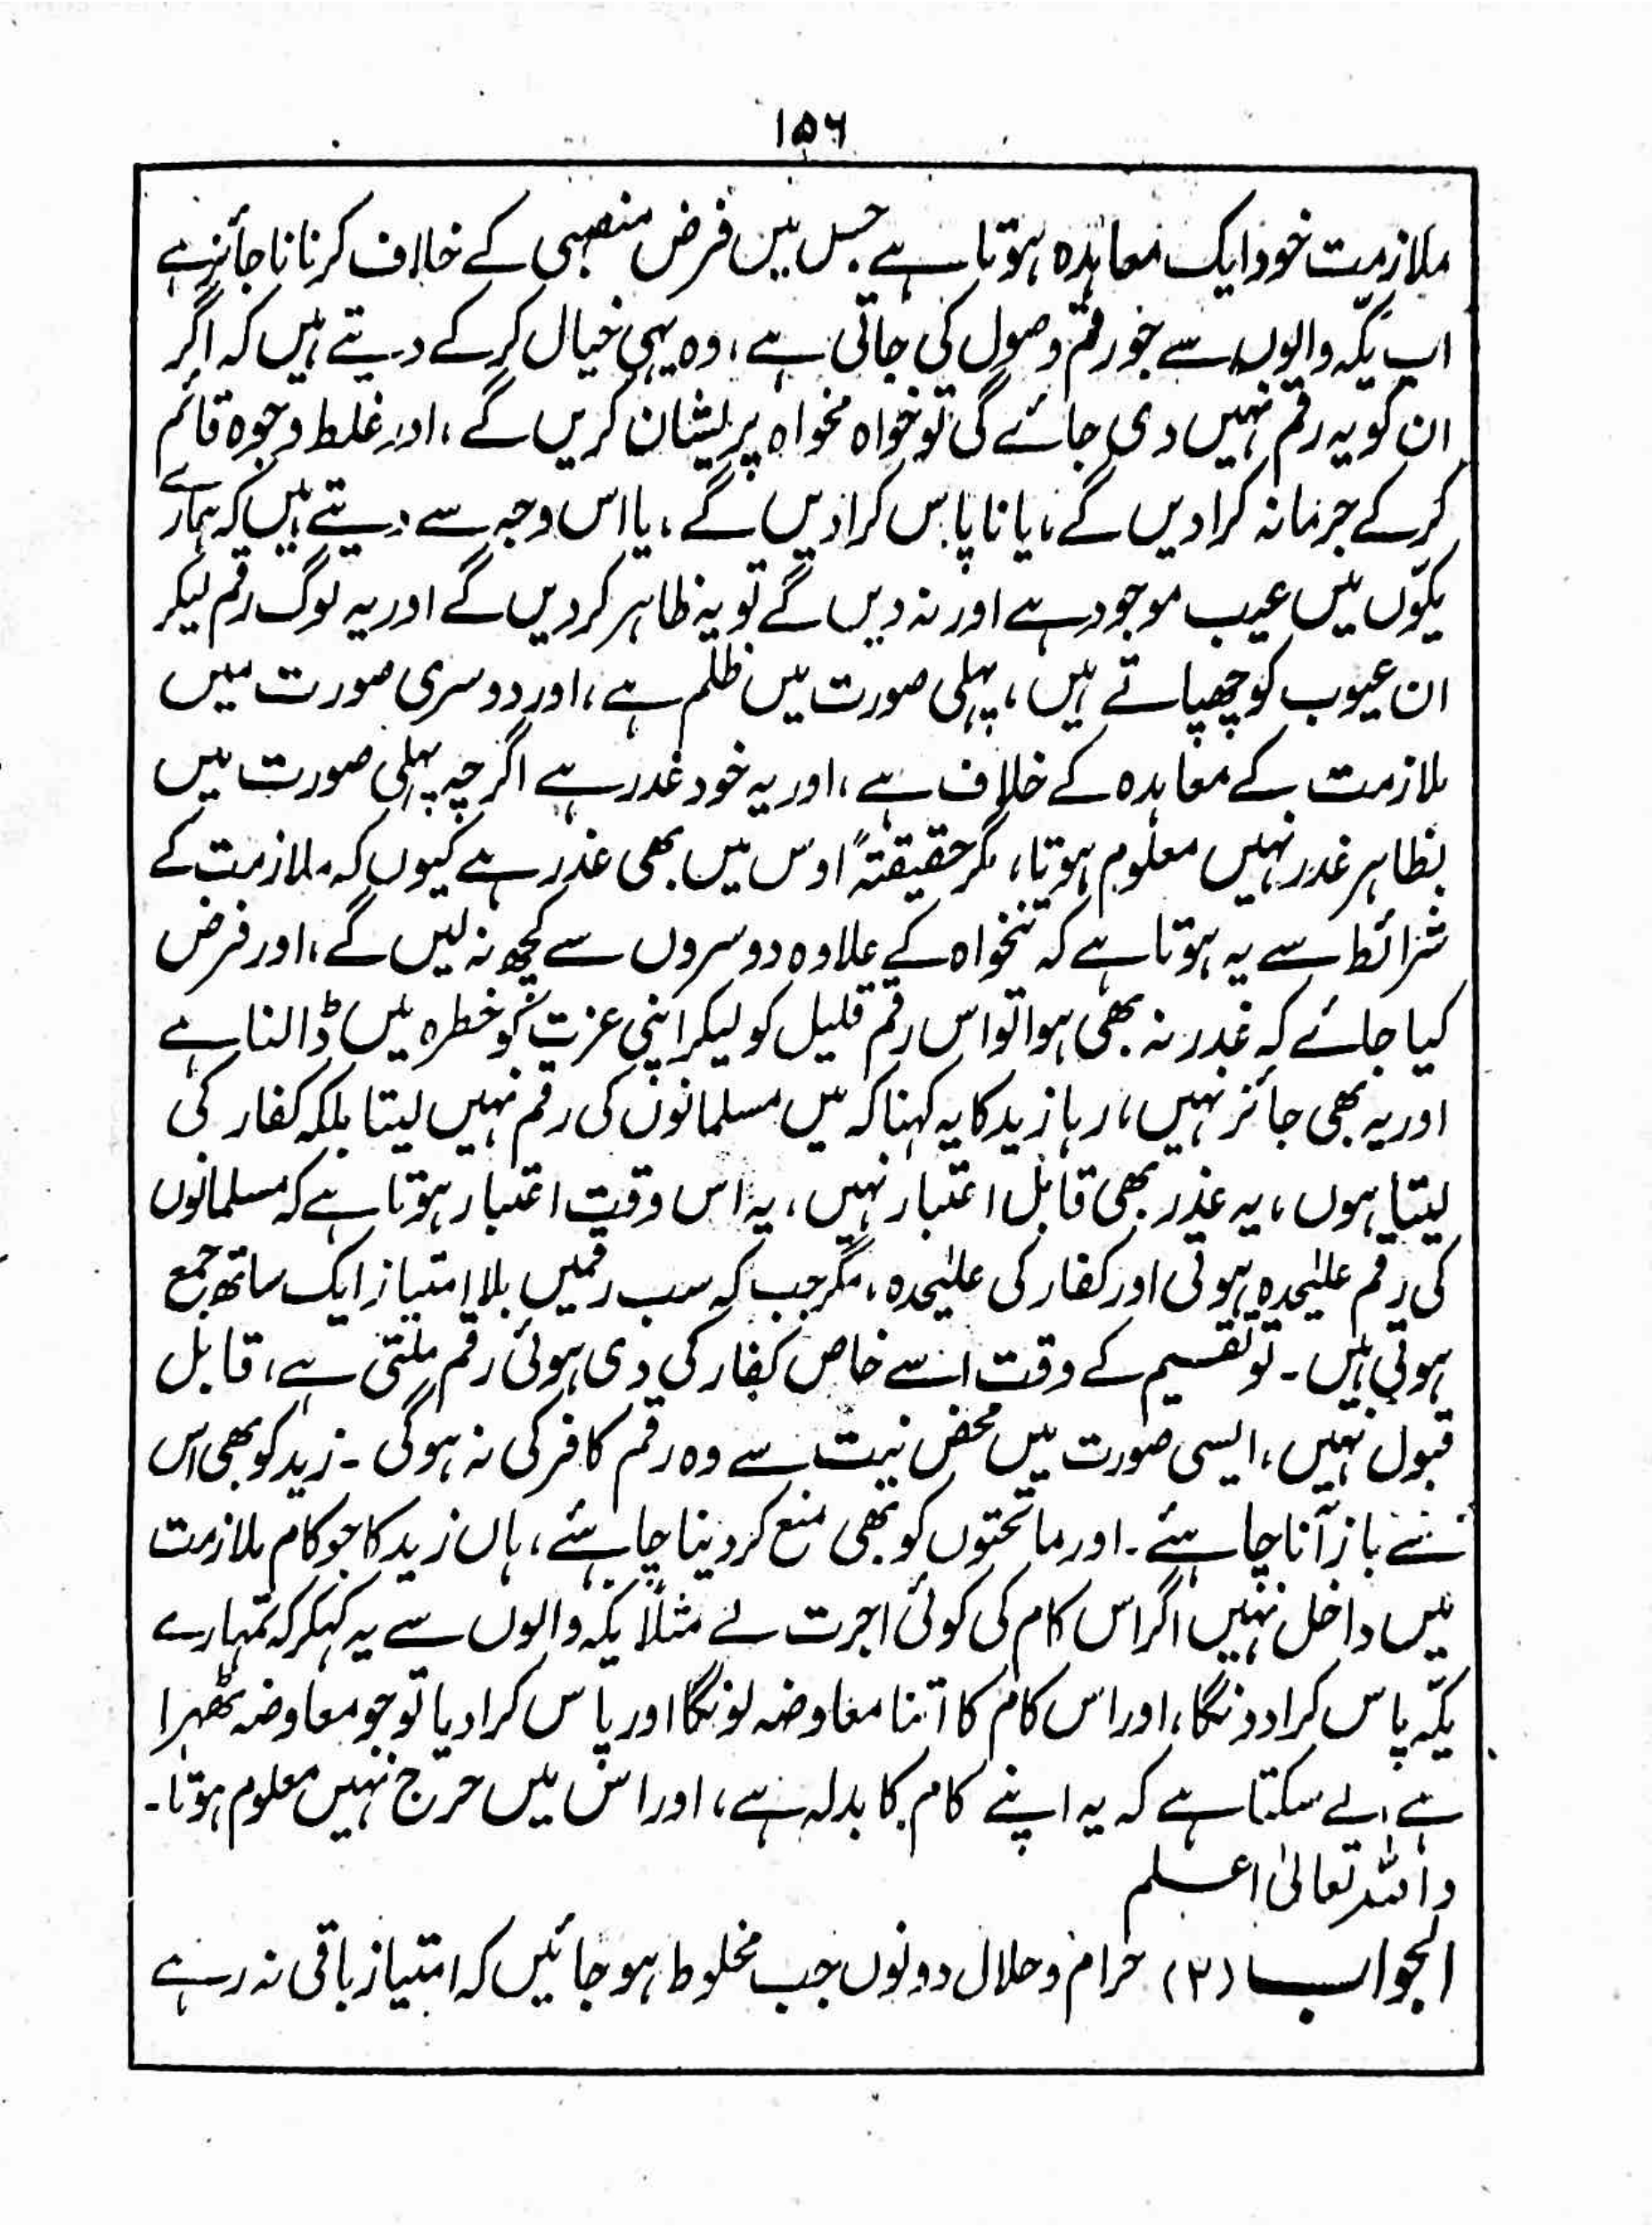 ۱۵۶
ملازمت خود ایک معاہدہ ہوتا ہے جس میں فرض منصبی کے خلاف کرنا ناجائز ہے
اب یکّہ والوں سے جو رقم وصول کی جاتی ہے، وہ یہی خیال کر کے دیتے ہیں کہ اگر
ان کو یہ رقم نہیں دی جائے گی تو خواہ مخواہ پریشان کریں گے، اور غلط وجوہ قائم
کر کے جرمانہ کرا دیں گے، یا ناپاس کرا دیں گے، یا اس وجہ سے دیتے ہیں کہ ہمارے
یکّوں میں عیب موجود ہے اور نہ دیں گے تو یہ ظاہر کر دیں گے اور یہ لوگ رقم لیکر
ان عیوب کو چھپاتے ہیں، پہلی صورت میں ظلم ہے، اور دوسری صورت میں
ملازمت کے معاہدہ کے خلاف ہے، اور یہ خود غدر ہے اگرچہ پہلی صورت میں
بظاہر غدر نہیں معلوم ہوتا، مگر حقیقتہً اوس میں بھی غدر ہے کیوں کہ ملازمت کے
شرائط سے یہ ہوتا ہے کہ تنخواہ کے علاوہ دوسروں سے کچھ نہ لیں گے، اور فرض
کیا جائے کہ غدر نہ بھی ہوا تو اس رقم قلیل کو لیکر اپنی عزت کو خطرہ میں ڈالنا ہے
اور یہ بھی جائز نہیں، رہا زید کا یہ کہنا کہ میں مسلمانوں کی رقم نہیں لیتا بلکہ کفار کی
لیتا ہوں، یہ عذر بھی قابل اعتبار نہیں، یہ اس وقت اعتبار ہوتا ہے کہ مسلمانوں
کی رقم علیٰحدہ ہوتی اور کفار کی علیٰحدہ، مگر جب کہ سب رقمیں بلا امتیاز ایک ساتھ جمع
ہوتی ہیں۔ تو تقسیم کے وقت اسے خاص کفار کی دی ہوئی رقم ملتی ہے، قابل
قبول نہیں، ایسی صورت میں محض نیت سے وہ رقم کافر کی نہ ہوگی۔ زید کو بھی اس
سے باز آنا چاہئے۔ اور ماتحتوں کو بھی منع کر دینا چاہئے، ہاں زید کا جو کام ملازمت
میں داخل نہیں اگر اس کام کی کوئی اجرت لے مثلاً یکہ والوں سے یہ کہکر کہ تمہارے
یکّہ پاس کرا دونگا، اور اس کام کا اتنا معاوضہ لونگا اور پاس کرا دیا تو جو معاوضہ ٹھہرا
ہے لے سکتا ہے کہ یہ اپنے کام کا بدلہ ہے، اور اس میں حرج نہیں معلوم ہوتا۔
واللہ تعالیٰ اعلم
الجواب (۳) حرام و حلال دونوں جب مخلوط ہو جائیں کہ امتیاز باقی نہ رہے